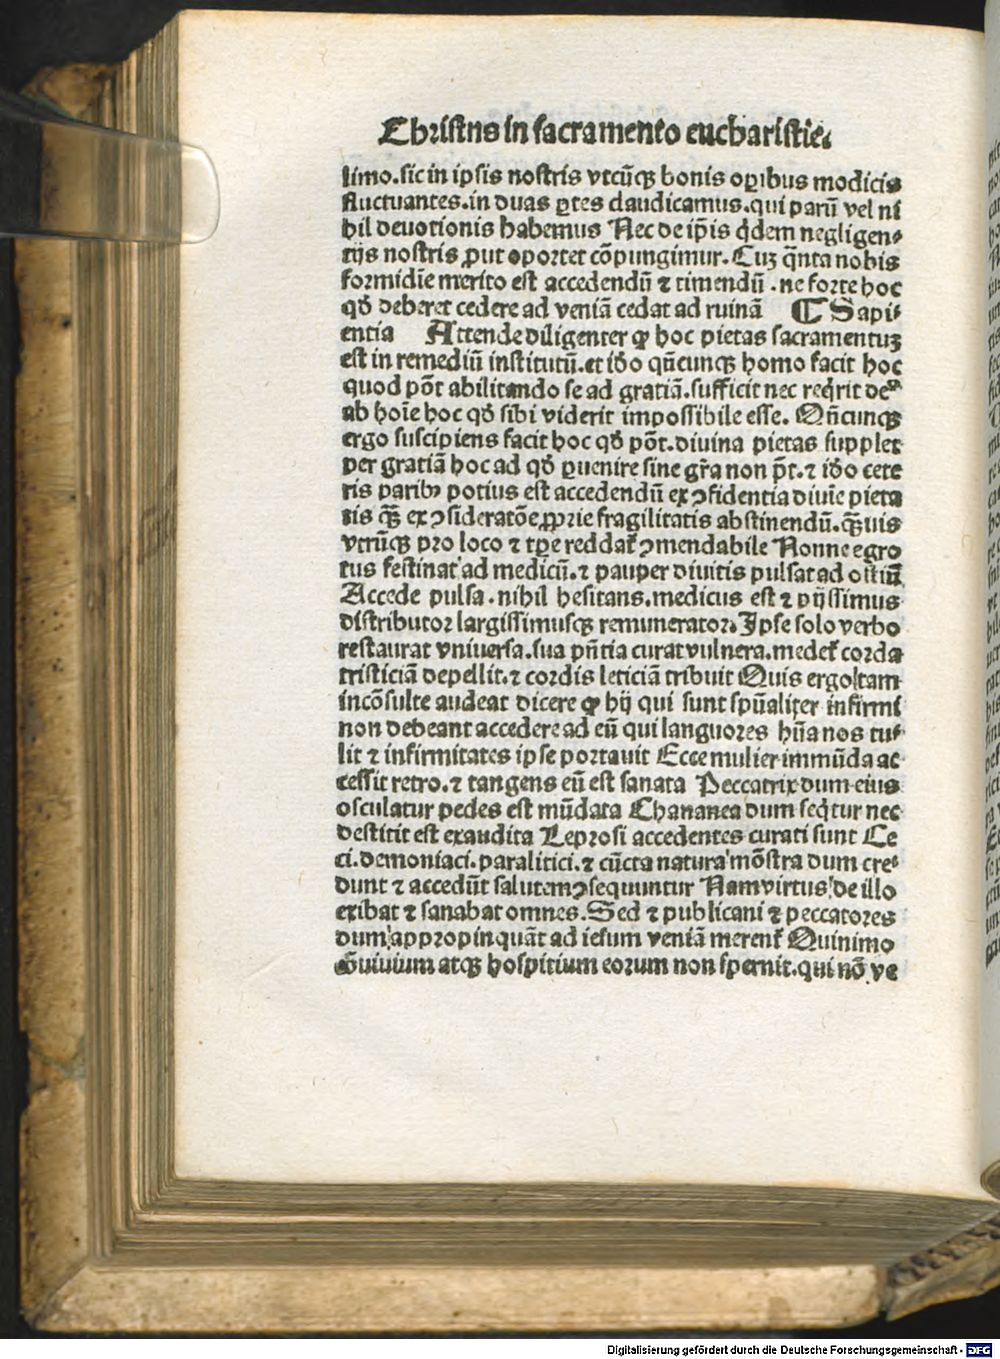 Christus in sacramento eucharistie.
simo. sic in ipsis nostris vtcūqꝫ bonis oꝑibus modicis
fluctuantes. in duas ꝑtes claudicamus. qui parū vel ni
hil deuotionis habemus Nec de ip̄is q̇dem negligen⸗
tijs nostris ꝓut oportet cōpungimur. Cuꝫ q̄nta nobis
formidīe merito est accedendū ⁊ timendū. ne forte hoc
qḋ deberet cedere ad veniā cedat ad ruinā ¶ Sapi⸗
entia Attende diligenter ꝙ hoc pietas sacramentuꝫ
est in remediū institutū. et iḋo qn̄cunqꝫ homo facit hoc
quod pōt abilitando se ad gratiā. sufficit nec reꝗrit deꝰ
ab hoīe hoc qḋ sibi viderit impossibile esse. Qn̄cunqꝫ
ergo suscipiens facit hoc qḋ pōt. diuina pietas supplet
per gratiā hoc ad qḋ ꝑuenire sine gr̄a non p̄t. ⁊ iḋo cete
ris paribꝰ potius est accedendū ex ꝯfidentia diuīe pieta
tis qꝫ̄ ex ꝯsideratōe ꝓprie fragilitatis abstinendū. qꝫ̄uis
vtrūqꝫ pro loco ⁊ tp̄e reddat᷑ ꝯmendabile Nonne egro
tus festinat ad medicū. ⁊ pauper diuitis pulsat ad ostiū
Accede pulsa. nihil hesitans. medicus est ⁊ pijssimus
distributor largissimusqꝫ remunerator. Ipse solo verbo
restaurat vniuersa. sua pn̄tia curat vulnera. medet᷑ corda
tristiciā depellit. ⁊ cordis leticiā tribuit Quis ergo tam
incōsulte audeat dicere ꝙ hij qui sunt spūaliter infirmi
non debeant accedere ad eū qui languores hūanos tu⸗
lit ⁊ infirmitates ipse portauit Ecce mulier immūda ac
cessit retro. ⁊ tangens eū est sanata Peccatrix dum eius
osculatur pedes est mūdata Chananea dum seꝗtur nec
destitit est exaudita Leprosi accedentes curati sunt Ce
ci. demoniaci. paralitici. ⁊ cūcta natura mōstra dum cre⸗
dunt ⁊ accedūt salutem ꝯsequuntur Nam virtus de illo
exibat ⁊ sanabat omnes. Sed ⁊ publicani ⁊ peccatores
dum appropinquāt ad iesum veniā merent᷑ Quinimo
cōuiuium atqꝫ hospitium eorum non spernit. qui nō ve
Digitalisierung gefördert durch die Deutsche Forschungsgemeinschaft - DFG